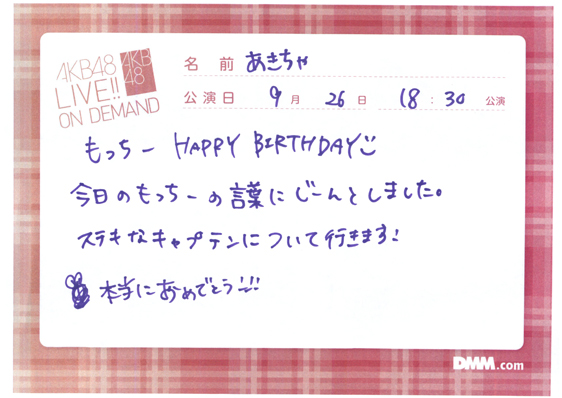 AKB48
LIVE!!
ON DEMAND
AKB
48
名前 あきちゃ
公演日 9月 26日 18:30 公演
もっちー HAPPY BIRTHDAY
今日のもっちーの言葉にじーんとしました。
ステキなキャプテンについて行きます!
本当におめでとう!!!
DMM.com